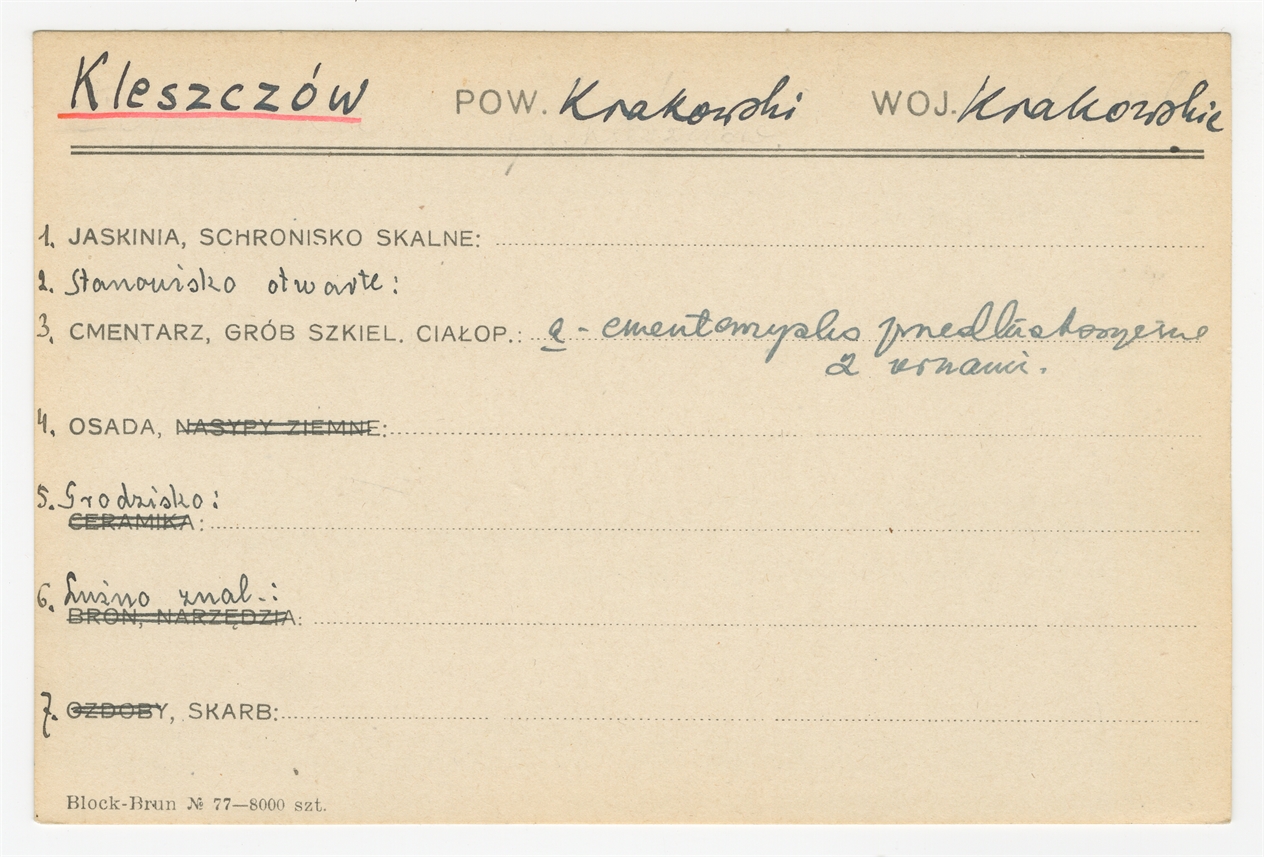 Kleszczów POW. Krakowski WOJ. Krakowskie
1. JASKINIA, SCHRONISKO SKALNE:
2. Stanowisko otwarte:
3. CMENTARZ, GRÓB SZKIEL. CIAŁOP.: a - cmentarzysko przedhistoryczne
z urnami.
4. OSADA, NASYPY ZIEMNE:
5. Grodzisko:
CERAMIKA:
6. Luźno znal.:
BROŃ, NARZĘDZIA:
7. OZDOBY, SKARB:
Block-Brun № 77—8000 szt.